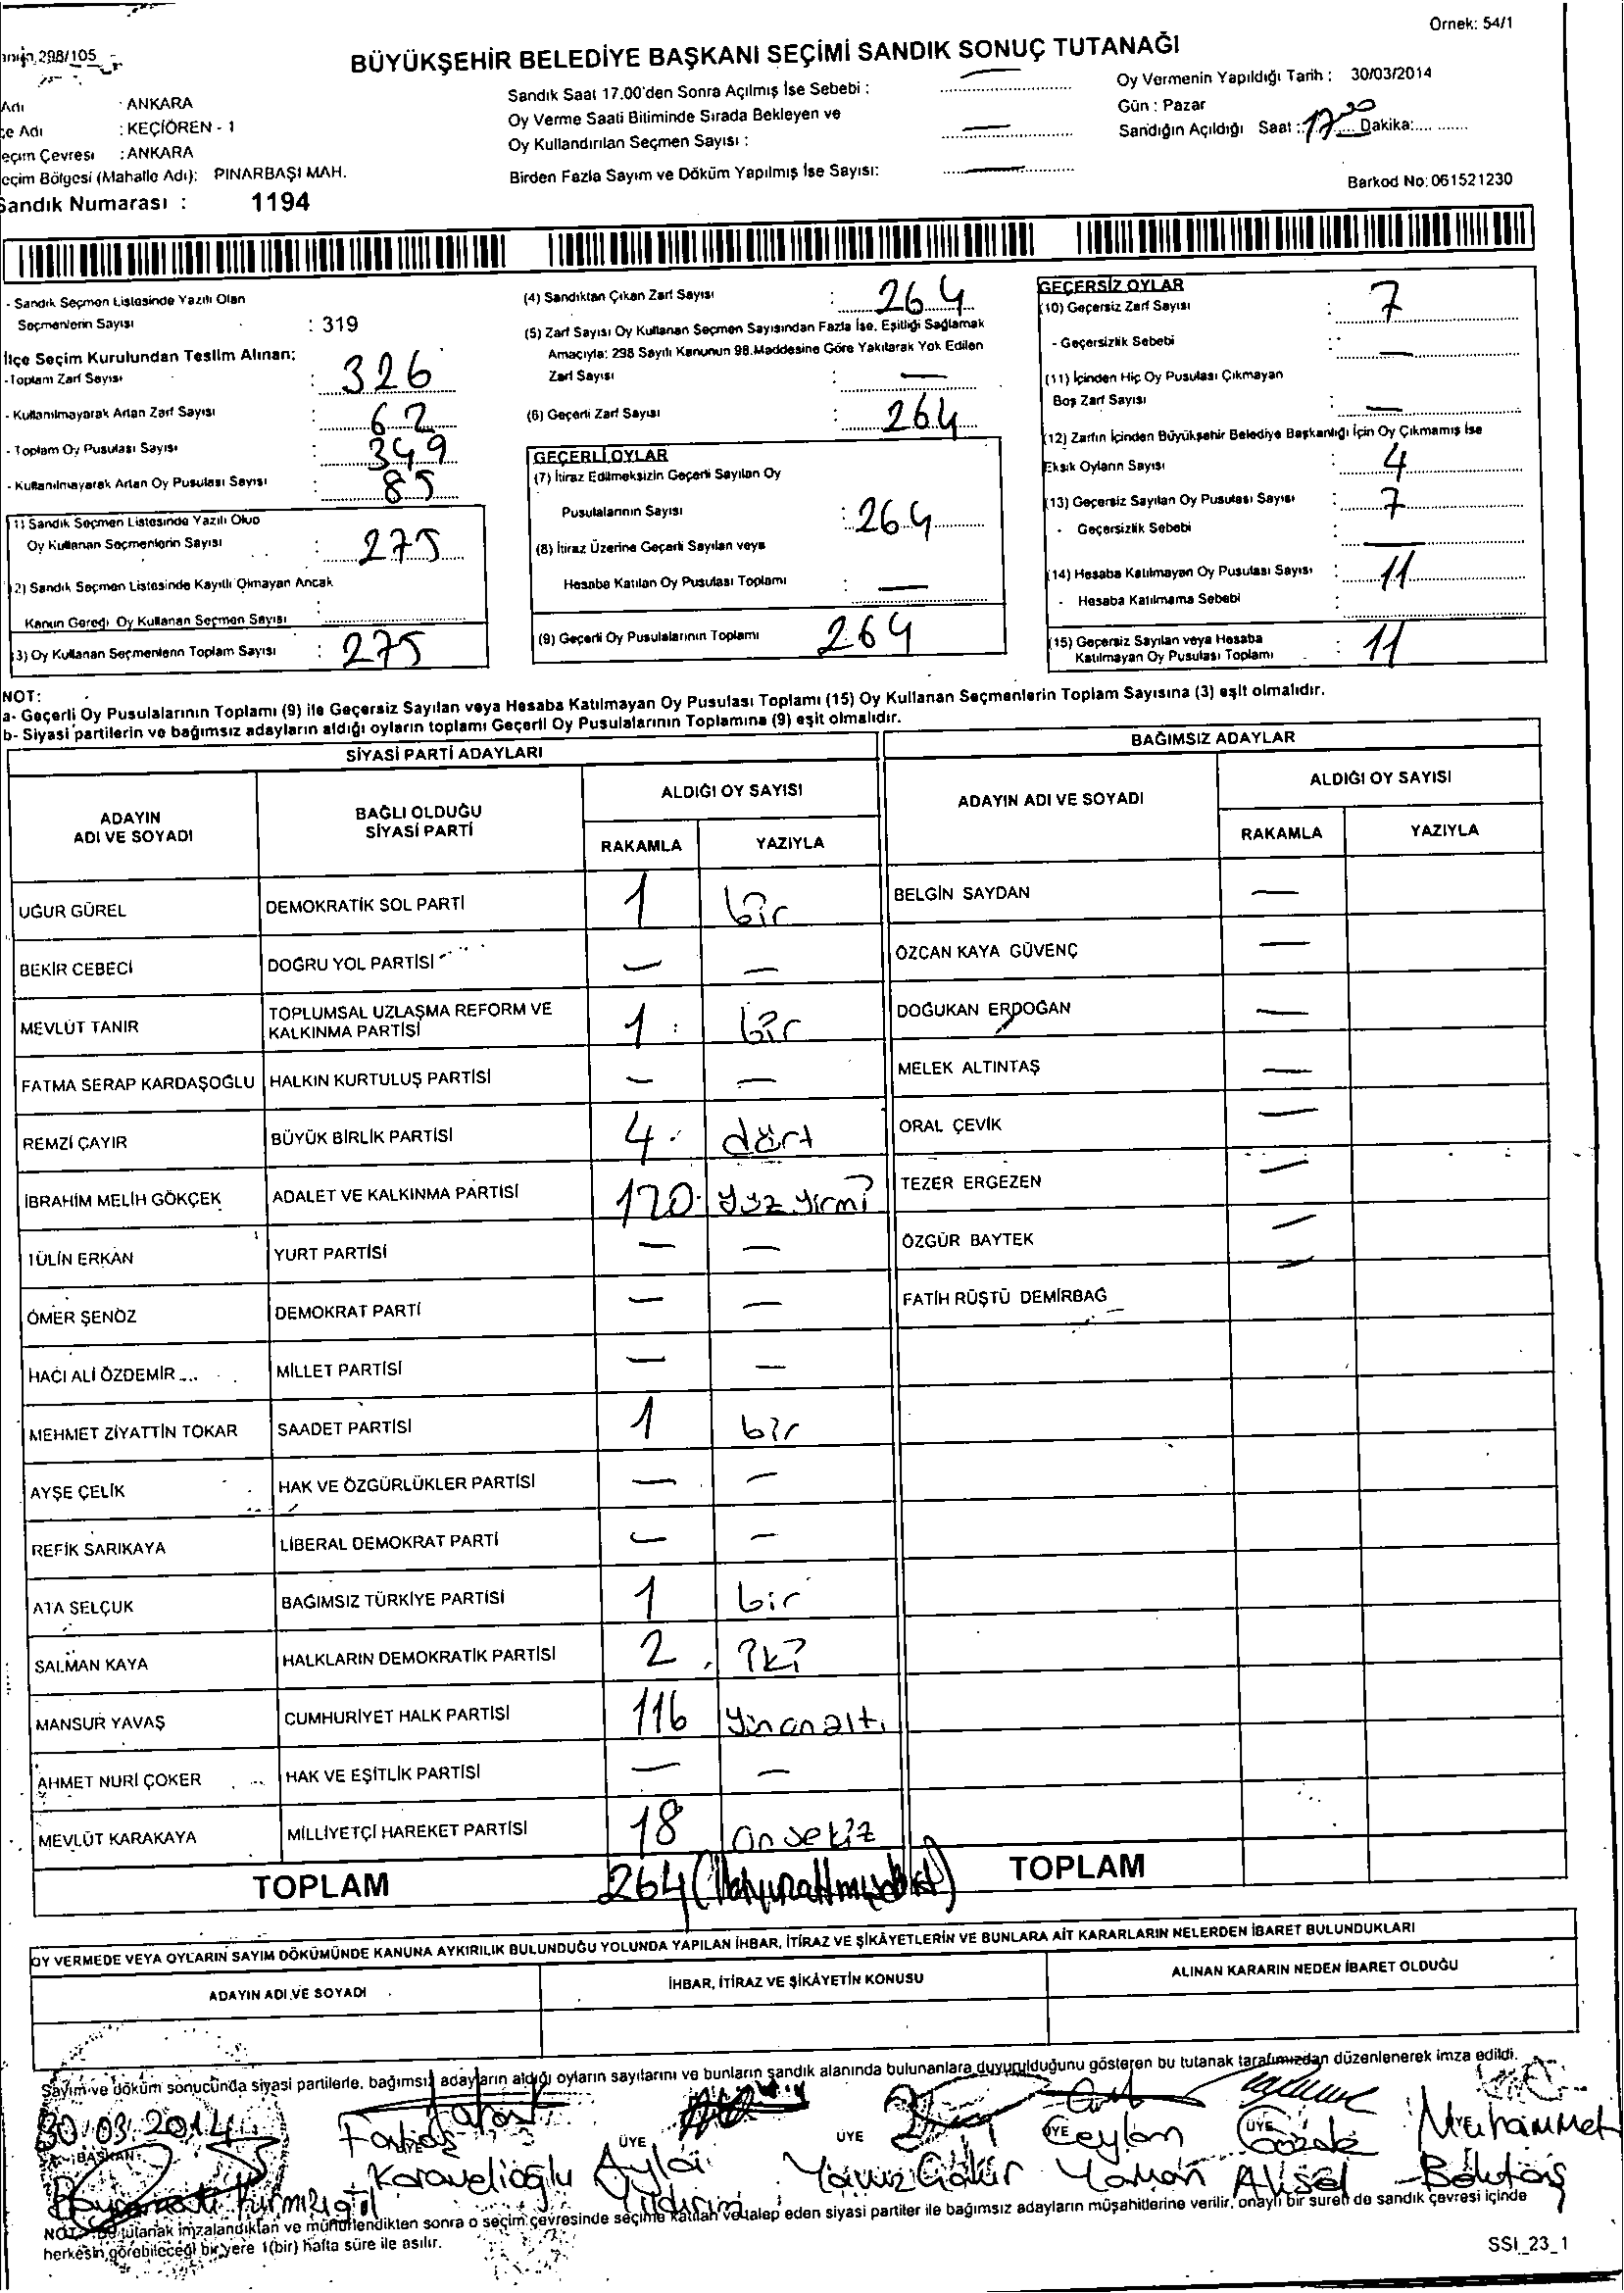 Örnek: 54/1
298/105
BÜYÜKŞEHİR BELEDİYE BAŞKANI SEÇİMİ SANDIK SONUÇ TUTANAĞI
Adı : ANKARA
çe Adı : KEÇİÖREN - 1
eçim Çevresi : ANKARA
eçim Bölgesi (Mahalle Adı): PINARBAŞI MAH.
Sandık Numarası : 1194
Sandık Saat 17.00'den Sonra Açılmış İse Sebebi : —
Oy Verme Saati Bitiminde Sırada Bekleyen ve
Oy Kullandırılan Seçmen Sayısı : —
Birden Fazla Sayım ve Döküm Yapılmış İse Sayısı: —
Oy Vermenin Yapıldığı Tarih : 30/03/2014
Gün : Pazar
Sandığın Açıldığı Saat : 17 20 Dakika:
Barkod No: 061521230
- Sandık Seçmen Listesinde Yazılı Olan
Seçmenlerin Sayısı : 319
İlçe Seçim Kurulundan Teslim Alınan:
- Toplam Zarf Sayısı : 326
- Kullanılmayarak Artan Zarf Sayısı : 62
- Toplam Oy Pusulası Sayısı : 349
- Kullanılmayarak Artan Oy Pusulası Sayısı : 85
1) Sandık Seçmen Listesinde Yazılı Olup
Oy Kullanan Seçmenlerin Sayısı : 275
2) Sandık Seçmen Listesinde Kayıtlı Olmayan Ancak
Kanun Gereği Oy Kullanan Seçmen Sayısı :
3) Oy Kullanan Seçmenlerin Toplam Sayısı : 275
(4) Sandıktan Çıkan Zarf Sayısı : 264
(5) Zarf Sayısı Oy Kullanan Seçmen Sayısından Fazla İse, Eşitliği Sağlamak
Amacıyla; 298 Sayılı Kanunun 98.Maddesine Göre Yakılarak Yok Edilen
Zarf Sayısı : —
(6) Geçerli Zarf Sayısı : 264
GEÇERLİ OYLAR
(7) İtiraz Edilmeksizin Geçerli Sayılan Oy
Pusulalarının Sayısı : 264
(8) İtiraz Üzerine Geçerli Sayılan veya
Hesaba Katılan Oy Pusulası Toplamı : —
(9) Geçerli Oy Pusulalarının Toplamı 264
GEÇERSİZ OYLAR
(10) Geçersiz Zarf Sayısı : 7
- Geçersizlik Sebebi : —
(11) İçinden Hiç Oy Pusulası Çıkmayan
Boş Zarf Sayısı : —
(12) Zarfın İçinden Büyükşehir Belediye Başkanlığı İçin Oy Çıkmamış İse
Eksik Oyların Sayısı : 4
(13) Geçersiz Sayılan Oy Pusulası Sayısı : 7
- Geçersizlik Sebebi : —
(14) Hesaba Katılmayan Oy Pusulası Sayısı : 11
- Hesaba Katılmama Sebebi :
(15) Geçersiz Sayılan veya Hesaba
Katılmayan Oy Pusulası Toplamı : 11
NOT:
a- Geçerli Oy Pusulalarının Toplamı (9) ile Geçersiz Sayılan veya Hesaba Katılmayan Oy Pusulası Toplamı (15) Oy Kullanan Seçmenlerin Toplam Sayısına (3) eşit olmalıdır.
b- Siyasi partilerin ve bağımsız adayların aldığı oyların toplamı Geçerli Oy Pusulalarının Toplamına (9) eşit olmalıdır.
SİYASİ PARTİ ADAYLARI
ADAYIN ADI VE SOYADI
BAĞLI OLDUĞU SİYASİ PARTİ
ALDIĞI OY SAYISI
RAKAMLA YAZIYLA
UĞUR GÜREL DEMOKRATİK SOL PARTİ 1 bir
BEKİR CEBECİ DOĞRU YOL PARTİSİ — —
MEVLÜT TANIR TOPLUMSAL UZLAŞMA REFORM VE KALKINMA PARTİSİ 1 bir
FATMA SERAP KARDAŞOĞLU HALKIN KURTULUŞ PARTİSİ — —
REMZİ ÇAYIR BÜYÜK BİRLİK PARTİSİ 4 dört
İBRAHİM MELİH GÖKÇEK ADALET VE KALKINMA PARTİSİ 120 yüz yirmi
TÜLİN ERKAN YURT PARTİSİ — —
ÖMER ŞENÖZ DEMOKRAT PARTİ — —
HACI ALİ ÖZDEMİR MİLLET PARTİSİ — —
MEHMET ZİYATTİN TOKAR SAADET PARTİSİ 1 bir
AYŞE ÇELİK HAK VE ÖZGÜRLÜKLER PARTİSİ — —
REFİK SARIKAYA LİBERAL DEMOKRAT PARTİ — —
ATA SELÇUK BAĞIMSIZ TÜRKİYE PARTİSİ 1 bir
SALMAN KAYA HALKLARIN DEMOKRATİK PARTİSİ 2 iki
MANSUR YAVAŞ CUMHURİYET HALK PARTİSİ 116 yüzonaltı
AHMET NURİ ÇOKER HAK VE EŞİTLİK PARTİSİ — —
MEVLÜT KARAKAYA MİLLİYETÇİ HAREKET PARTİSİ 18 onsekiz
TOPLAM 264
BAĞIMSIZ ADAYLAR
ADAYIN ADI VE SOYADI
ALDIĞI OY SAYISI
RAKAMLA YAZIYLA
BELGİN SAYDAN —
ÖZCAN KAYA GÜVENÇ —
DOĞUKAN ERDOĞAN —
MELEK ALTINTAŞ —
ORAL ÇEVİK —
TEZER ERGEZEN —
ÖZGÜR BAYTEK —
FATİH RÜŞTÜ DEMİRBAĞ —
TOPLAM
OY VERMEDE VEYA OYLARIN SAYIM DÖKÜMÜNDE KANUNA AYKIRILIK BULUNDUĞU YOLUNDA YAPILAN İHBAR, İTİRAZ VE ŞİKÂYETLERİN VE BUNLARA AİT KARARLARIN NELERDEN İBARET BULUNDUKLARI
ADAYIN ADI VE SOYADI
İHBAR, İTİRAZ VE ŞİKÂYETİN KONUSU
ALINAN KARARIN NEDEN İBARET OLDUĞU
Sayım ve döküm sonucunda siyasi partilerle, bağımsız adayların aldığı oyların sayılarını ve bunların sandık alanında bulunanlara duyurulduğunu gösteren bu tutanak tarafımızdan düzenlenerek imza edildi.
30/03/2014
BAŞKAN ÜYE ÜYE ÜYE ÜYE
Karavelioğlu
Ayla Yıldırım
Yavuz
Ceylan Yaman
Gözde
Muhammet Bektaş
NOT: Bu tutanak imzalandıktan ve mühürlendikten sonra o seçim çevresinde seçime katılan ve talep eden siyasi partiler ile bağımsız adayların müşahitlerine verilir, onaylı bir sureti de sandık çevresi içinde
herkesin görebileceği bir yere 1(bir) hafta süre ile asılır.
SSI_23_1